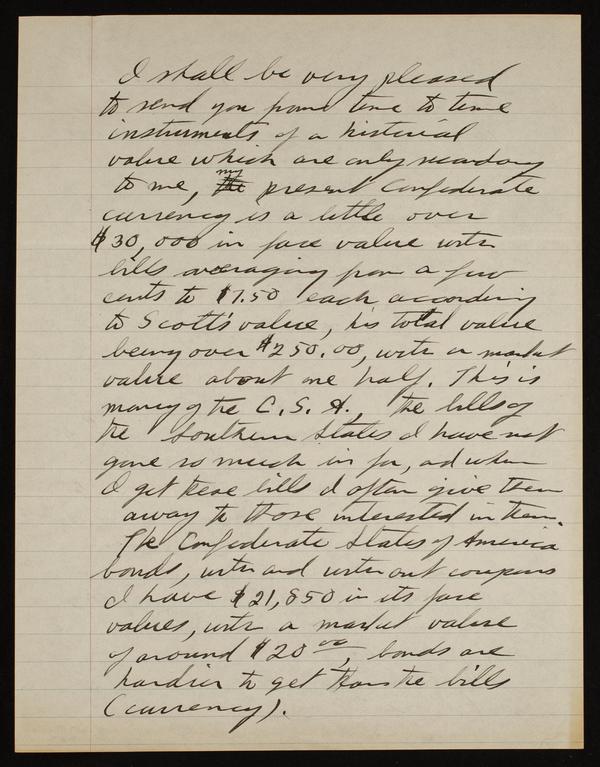 I shall be very pleased
to send you from time to time
instruments of a histerical
value which are only secondary
to me, the my present Confederate
currency is a little over
$30,000 in face value with
bills averaging from a few
cents to $7.50 each according
to Scott's value, his total value
being over $250.00, with a market
value about one half. This is
money of the C. S. A., the bills of
the Southern States I have not
gone so much in for, and when
I get these bills I often give them
away to those interested in them.
The Confederate States of America
bonds, with and without coupons
I have $21,850 in its face
values, with a market value
of around $20 00, bonds are
hardier to get than the bills
(currency).